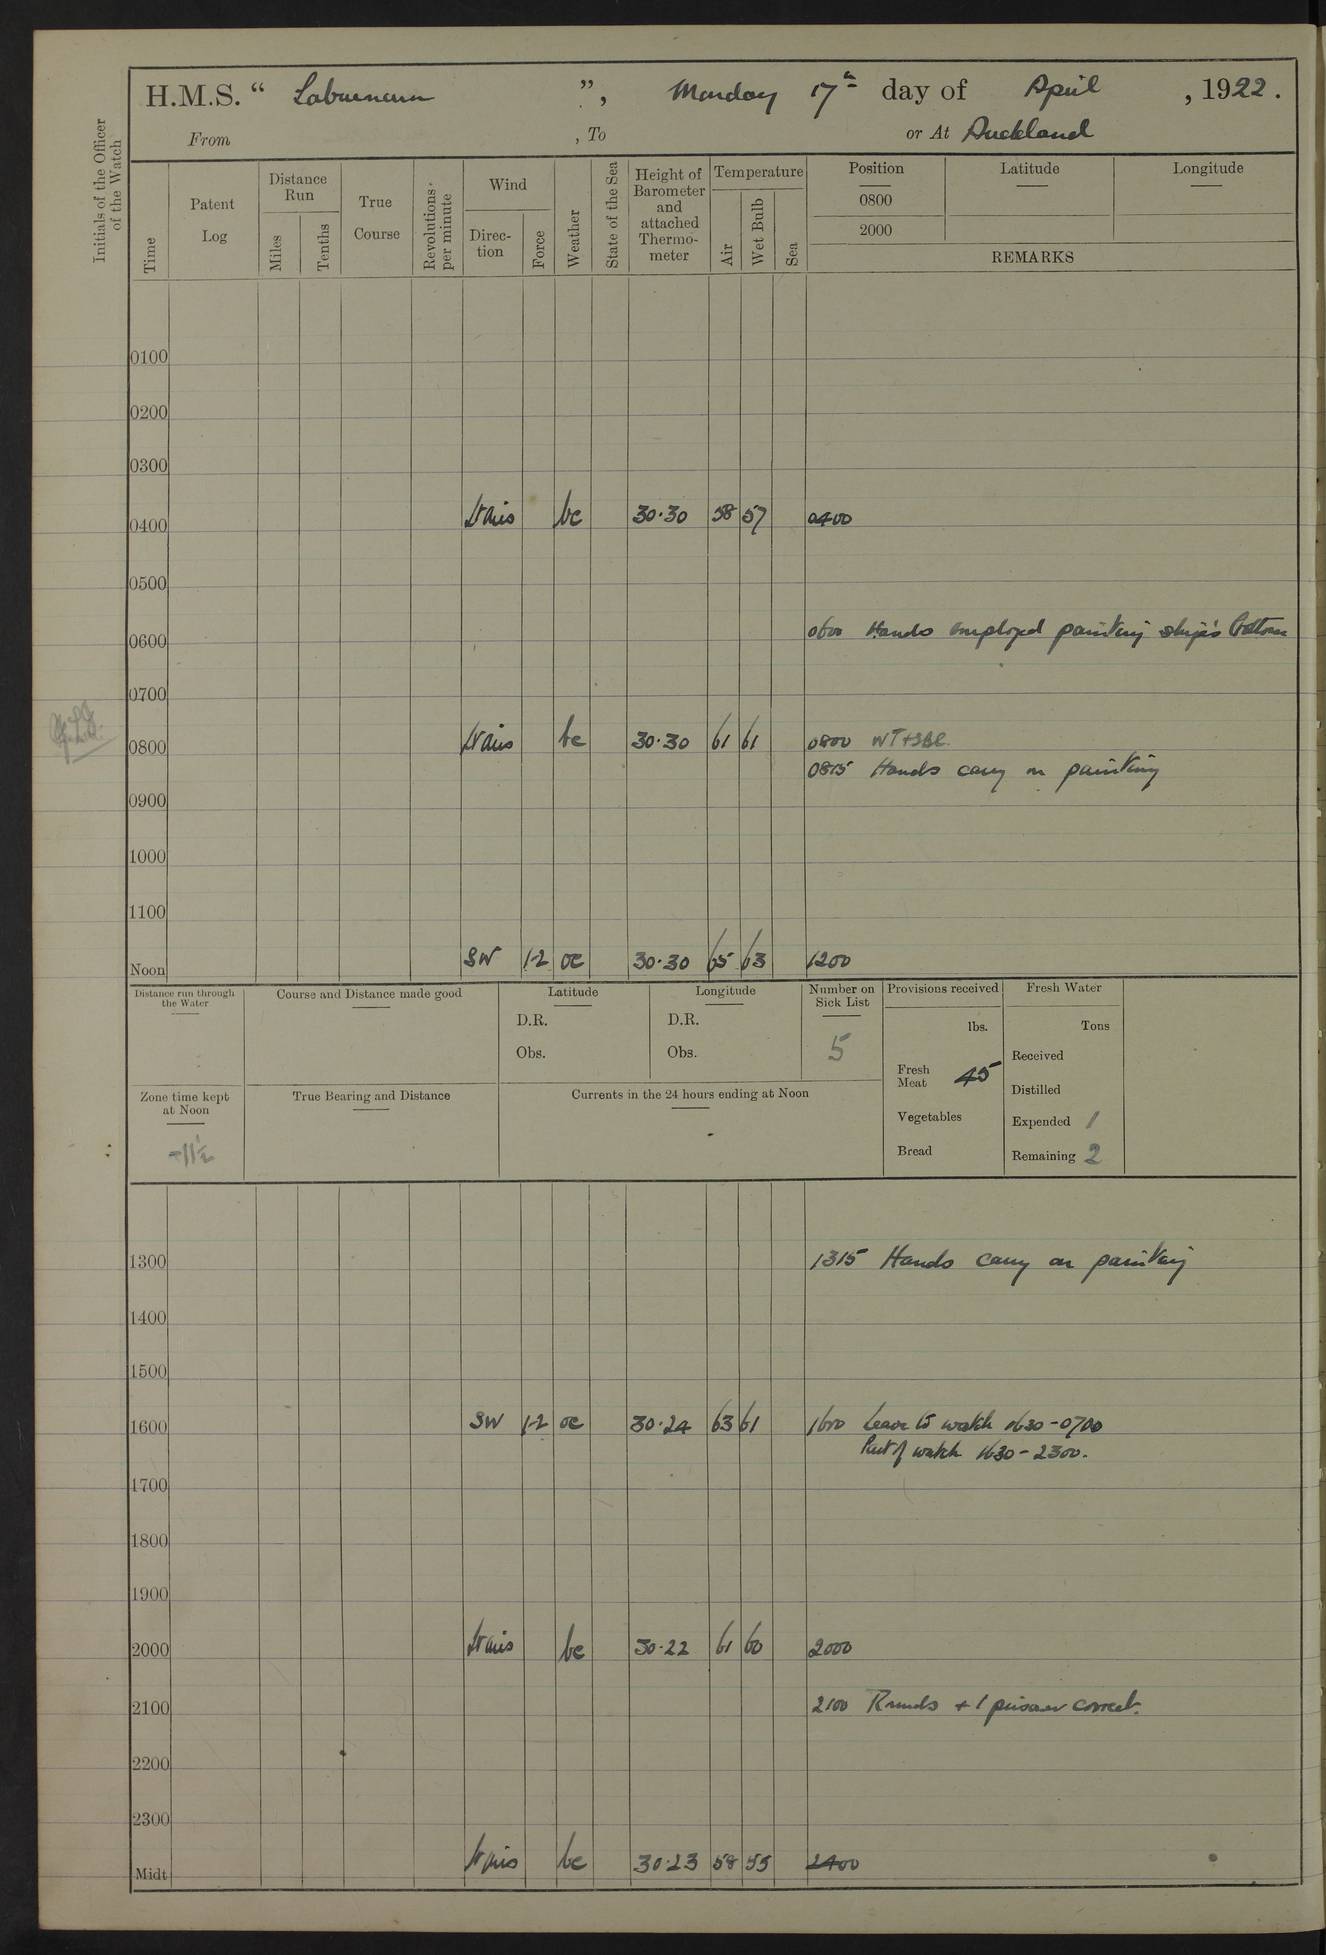 H.M.S. “ Laburnum ”, Monday 17th day of April , 1922.
From , To or At Auckland
Initials of the Officer of the Watch
Time
Patent Log
Distance Run
Miles
Tenths
True Course
Revolutions per minute
Wind
Direc-tion
Force
Weather
State of the Sea
Height of Barometer and attached Thermo-meter
Temperature
Air
Wet Bulb
Sea
Position Latitude Longitude
0800
2000
REMARKS
0100
0200
0300
0400 Lt airs bc 30·30 58 57 0400
0500
0600 0600 Hands employed painting ship's bottom
0700
0800 Lt airs bc 30·30 61 61 0800 WT+SBE.
0815 Hands carry on painting
0900
1000
1100
Noon SW 1-2 oc 30·30 65 63 1200
Distance run through the Water
Course and Distance made good
Latitude
D.R.
Obs.
Longitude
D.R.
Obs.
Number on Sick List
5
Provisions received
lbs.
Fresh Meat 45
Vegetables
Bread
Fresh Water
Tons
Received
Distilled
Expended 1
Remaining 2
Zone time kept at Noon
-11½
True Bearing and Distance
Currents in the 24 hours ending at Noon
1300 1315 Hands carry on painting
1400
1500
1600 SW 1-2 oc 30·24 63 61 1600 Leave to watch 1630-0700
Part of watch 1630-2300.
1700
1800
1900
2000 Lt airs bc 30·22 61 60 2000
2100 2100 Rounds + 1 prisoner correct.
2200
2300
Midt Lt airs bc 30·23 58 55 2400